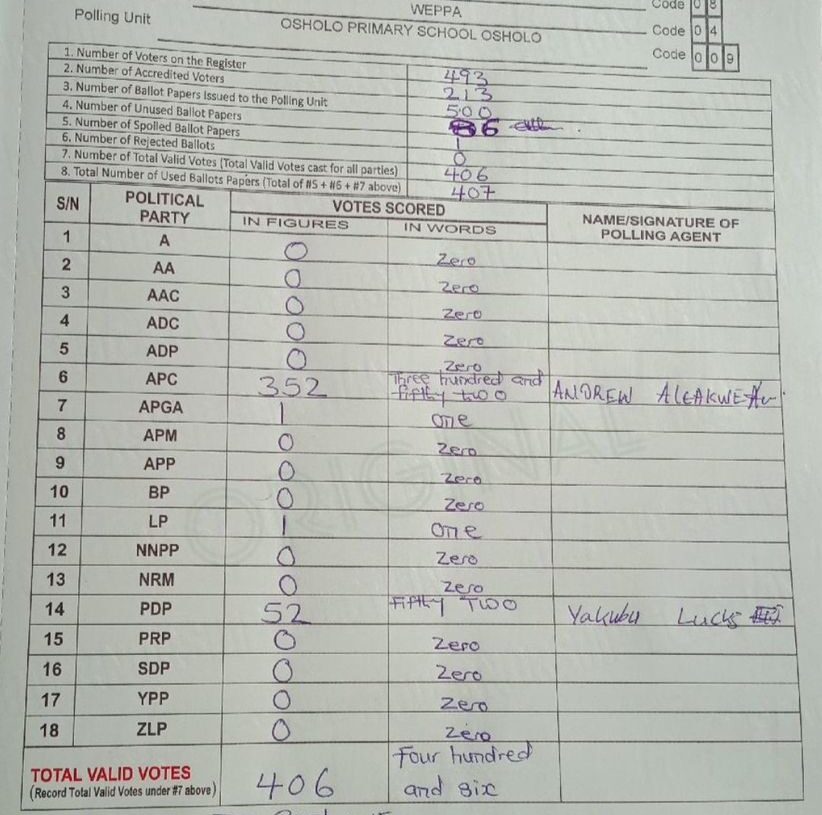 WEPPA Code 08
Polling Unit OSHOLO PRIMARY SCHOOL OSHOLO Code 04
Code 009
1. Number of Voters on the Register 493
2. Number of Accredited Voters 213
3. Number of Ballot Papers Issued to the Polling Unit 500
4. Number of Unused Ballot Papers 86
5. Number of Spoiled Ballot Papers 1
6. Number of Rejected Ballots 0
7. Number of Total Valid Votes (Total Valid Votes cast for all parties) 406
8. Total Number of Used Ballots Papers (Total of #5 + #6 + #7 above) 407
S/N POLITICAL PARTY VOTES SCORED NAME/SIGNATURE OF POLLING AGENT
IN FIGURES IN WORDS
1 A 0 Zero
2 AA 0 Zero
3 AAC 0 Zero
4 ADC 0 Zero
5 ADP 0 Zero
6 APC 352 Three hundred and fifthy two ANDREW
7 APGA 1 one
8 APM 0 Zero
9 APP 0 Zero
10 BP 0 Zero
11 LP 1 One
12 NNPP 0 Zero
13 NRM 0 Zero
14 PDP 52 Fifthy Two Yakubu Lucky
15 PRP 0 Zero
16 SDP 0 Zero
17 YPP 0 Zero
18 ZLP 0 Zero
TOTAL VALID VOTES 406 Four hundred
(Record Total Valid Votes under #7 above) and six
ORIGINAL